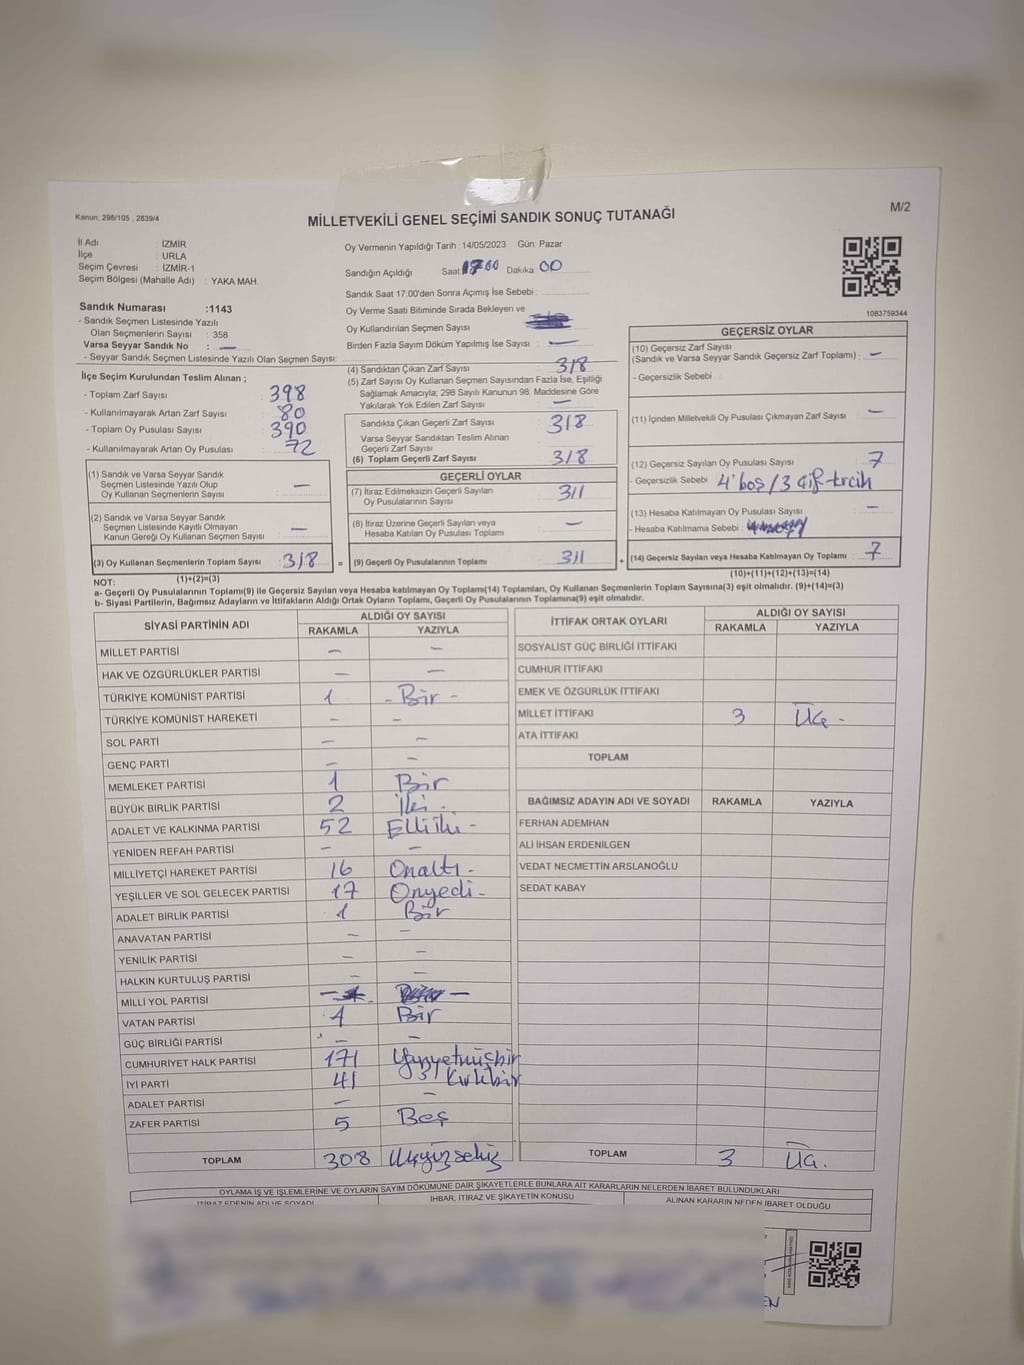 Kanun; 298/105 , 2839/4
MİLLETVEKİLİ GENEL SEÇİMİ SANDIK SONUÇ TUTANAĞI
M/2
İl Adı : İZMİR
İlçe : URLA
Seçim Çevresi : İZMİR-1
Seçim Bölgesi (Mahalle Adı) : YAKA MAH.
Sandık Numarası :1143
- Sandık Seçmen Listesinde Yazılı
Olan Seçmenlerin Sayısı : 358
Varsa Seyyar Sandık No : —
- Seyyar Sandık Seçmen Listesinde Yazılı Olan Seçmen Sayısı:
Oy Vermenin Yapıldığı Tarih : 14/05/2023 Gün: Pazar
Sandığın Açıldığı Saat Dakika 00
Sandık Saat 17:00'den Sonra Açımış İse Sebebi :
Oy Verme Saati Bitiminde Sırada Bekleyen ve
Oy Kullandırılan Seçmen Sayısı
Birden Fazla Sayım Döküm Yapılmış İse Sayısı : —
1083759344
İlçe Seçim Kurulundan Teslim Alınan ;
- Toplam Zarf Sayısı : 398
- Kullanılmayarak Artan Zarf Sayısı : 80
- Toplam Oy Pusulası Sayısı : 390
- Kullanılmayarak Artan Oy Pusulası : 72
(1) Sandık ve Varsa Seyyar Sandık
Seçmen Listesinde Yazılı Olup
Oy Kullanan Seçmenlerin Sayısı —
(2) Sandık ve Varsa Seyyar Sandık
Seçmen Listesinde Kayıtlı Olmayan
Kanun Gereği Oy Kullanan Seçmen Sayısı —
(3) Oy Kullanan Seçmenlerin Toplam Sayısı : 318
(1)+(2)=(3)
(4) Sandıktan Çıkan Zarf Sayısı : 318
(5) Zarf Sayısı Oy Kullanan Seçmen Sayısından Fazla İse, Eşitliği
Sağlamak Amacıyla; 298 Sayılı Kanunun 98. Maddesine Göre
Yakılarak Yok Edilen Zarf Sayısı : —
Sandıkta Çıkan Geçerli Zarf Sayısı : 318
Varsa Seyyar Sandıktan Teslim Alınan
Geçerli Zarf Sayısı
(6) Toplam Geçerli Zarf Sayısı : 318
GEÇERLİ OYLAR
(7) İtiraz Edilmeksizin Geçerli Sayılan
Oy Pusulalarının Sayısı : 311
(8) İtiraz Üzerine Geçerli Sayılan veya
Hesaba Katılan Oy Pusulası Toplamı : —
= (9) Geçerli Oy Pusulalarının Toplamı : 311
GEÇERSİZ OYLAR
(10) Geçersiz Zarf Sayısı
(Sandık ve Varsa Seyyar Sandık Geçersiz Zarf Toplamı) : —
- Geçersizlik Sebebi :
(11) İçinden Milletvekili Oy Pusulası Çıkmayan Zarf Sayısı : —
(12) Geçersiz Sayılan Oy Pusulası Sayısı : 7
- Geçersizlik Sebebi 4 boş / 3 çift tercih
(13) Hesaba Katılmayan Oy Pusulası Sayısı : —
- Hesaba Katılmama Sebebi :
+ (14) Geçersiz Sayılan veya Hesaba Katılmayan Oy Toplamı : 7
(10)+(11)+(12)+(13)=(14)
NOT:
a- Geçerli Oy Pusulalarının Toplamı(9) ile Geçersiz Sayılan veya Hesaba katılmayan Oy Toplamı(14) Toplamları, Oy Kullanan Seçmenlerin Toplam Sayısına(3) eşit olmalıdır. (9)+(14)=(3)
b- Siyasi Partilerin, Bağımsız Adayların ve İttifakların Aldığı Ortak Oyların Toplamı, Geçerli Oy Pusulalarının Toplamına(9) eşit olmalıdır.
SİYASİ PARTİNİN ADI ALDIĞI OY SAYISI
RAKAMLA YAZIYLA
MİLLET PARTİSİ — —
HAK VE ÖZGÜRLÜKLER PARTİSİ — —
TÜRKİYE KOMÜNİST PARTİSİ 1 - Bir -
TÜRKİYE KOMÜNİST HAREKETİ — —
SOL PARTİ — —
GENÇ PARTİ — —
MEMLEKET PARTİSİ 1 Bir
BÜYÜK BİRLİK PARTİSİ 2 İki -
ADALET VE KALKINMA PARTİSİ 52 Elliiki -
YENİDEN REFAH PARTİSİ — —
MİLLİYETÇİ HAREKET PARTİSİ 16 Onaltı -
YEŞİLLER VE SOL GELECEK PARTİSİ 17 Onyedi -
ADALET BİRLİK PARTİSİ 1 Bir
ANAVATAN PARTİSİ — —
YENİLİK PARTİSİ — —
HALKIN KURTULUŞ PARTİSİ — —
MİLLİ YOL PARTİSİ — —
VATAN PARTİSİ 1 Bir
GÜÇ BİRLİĞİ PARTİSİ — —
CUMHURİYET HALK PARTİSİ 171 Yüzyetmişbir
İYİ PARTİ 41 Kırkbir
ADALET PARTİSİ — —
ZAFER PARTİSİ 5 Beş
TOPLAM 308 Üçyüzsekiz
İTTİFAK ORTAK OYLARI ALDIĞI OY SAYISI
RAKAMLA YAZIYLA
SOSYALİST GÜÇ BİRLİĞİ İTTİFAKI
CUMHUR İTTİFAKI
EMEK VE ÖZGÜRLÜK İTTİFAKI
MİLLET İTTİFAKI 3 Üç -
ATA İTTİFAKI
TOPLAM
BAĞIMSIZ ADAYIN ADI VE SOYADI RAKAMLA YAZIYLA
FERHAN ADEMHAN
ALİ İHSAN ERDENİLGEN
VEDAT NECMETTİN ARSLANOĞLU
SEDAT KABAY
TOPLAM 3 Üç.
OYLAMA İŞ VE İŞLEMLERİNE VE OYLARIN SAYIM DÖKÜMÜNE DAİR ŞİKAYETLERLE BUNLARA AİT KARARLARIN NELERDEN İBARET BULUNDUKLARI
İTİRAZ EDENİN ADI VE SOYADI İHBAR, İTİRAZ VE ŞİKAYETİN KONUSU ALINAN KARARIN NEDEN İBARET OLDUĞU